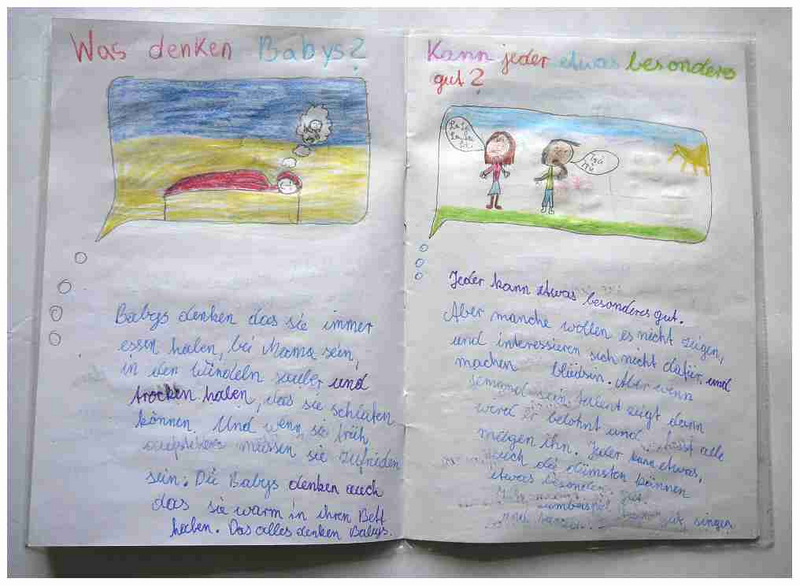 Was denken Babys?
Babys denken das sie immer
essen haben, bei Mama sein,
in den Windeln sauber und
trocken haben, das sie schlafen
können. Und wenn sie früh
aufstehen müssen sie zufrieden
sein. Die Babys denken auch
das sie warm in ihren Bett
haben. Das alles denken Babys.
Kann jeder etwas besonders
gut?
La La
La La
Jeder kann etwas besonderes gut.
Aber manche wollen es nicht zeigen,
und interessieren sich nicht dafür und
machen blödsin. Aber wenn
jemand sein talent zeigt dann
werd er belohnt und alle
mögen ihn. Jeder kann etwas,
auch die dümsten können
etwas besonderes gut.
zumbeispiel gut singen
und tanzen.